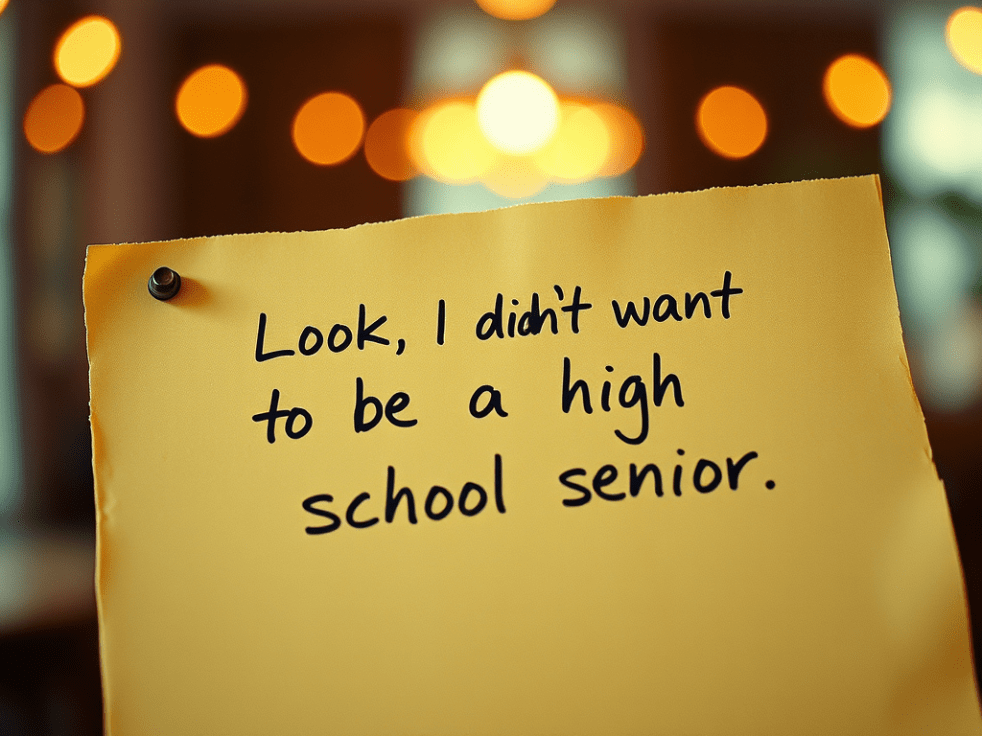 Look, I didn't want
to be a high
school senior.